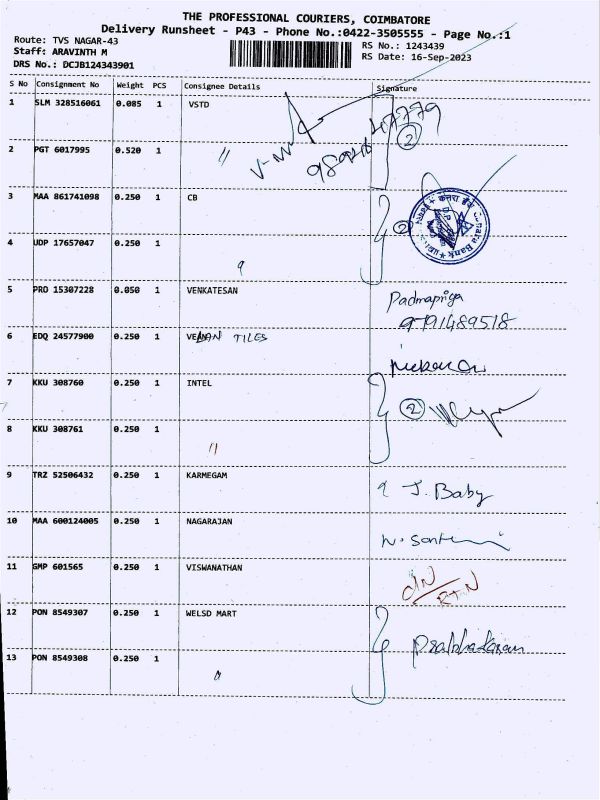 THE PROFESSIONAL COURIERS, COIMBATORE
Delivery Runsheet - P43 - Phone No.:0422-3505555 - Page No.:1
Route: TVS NAGAR-43
Staff: ARAVINTH M
DRS No.: DCJB124343901
RS No.: 1243439
RS Date: 16-Sep-2023
S No Consignment No Weight PCS Consignee Details Signature
1 SLM 328516061 0.085 1 VSTD
2 PGT 6017995 0.520 1 "
2
3 MAA 861741098 0.250 1 CB
2
Canara Bank
4 UDP 17657047 0.250 1 "
5 PRO 15307228 0.050 1 VENKATESAN Padmapriya
9791489518
6 EDQ 24577900 0.250 1 VELAN TILES
7 KKU 308760 0.250 1 INTEL 2
8 KKU 308761 0.250 1 "
9 TRZ 52506432 0.250 1 KARMEGAM J. Baby
10 MAA 600124005 0.250 1 NAGARAJAN
11 GMP 601565 0.250 1 VISWANATHAN D/N
RTN
12 PON 8549307 0.250 1 WELSD MART Prabhakaran
13 PON 8549308 0.250 1 "